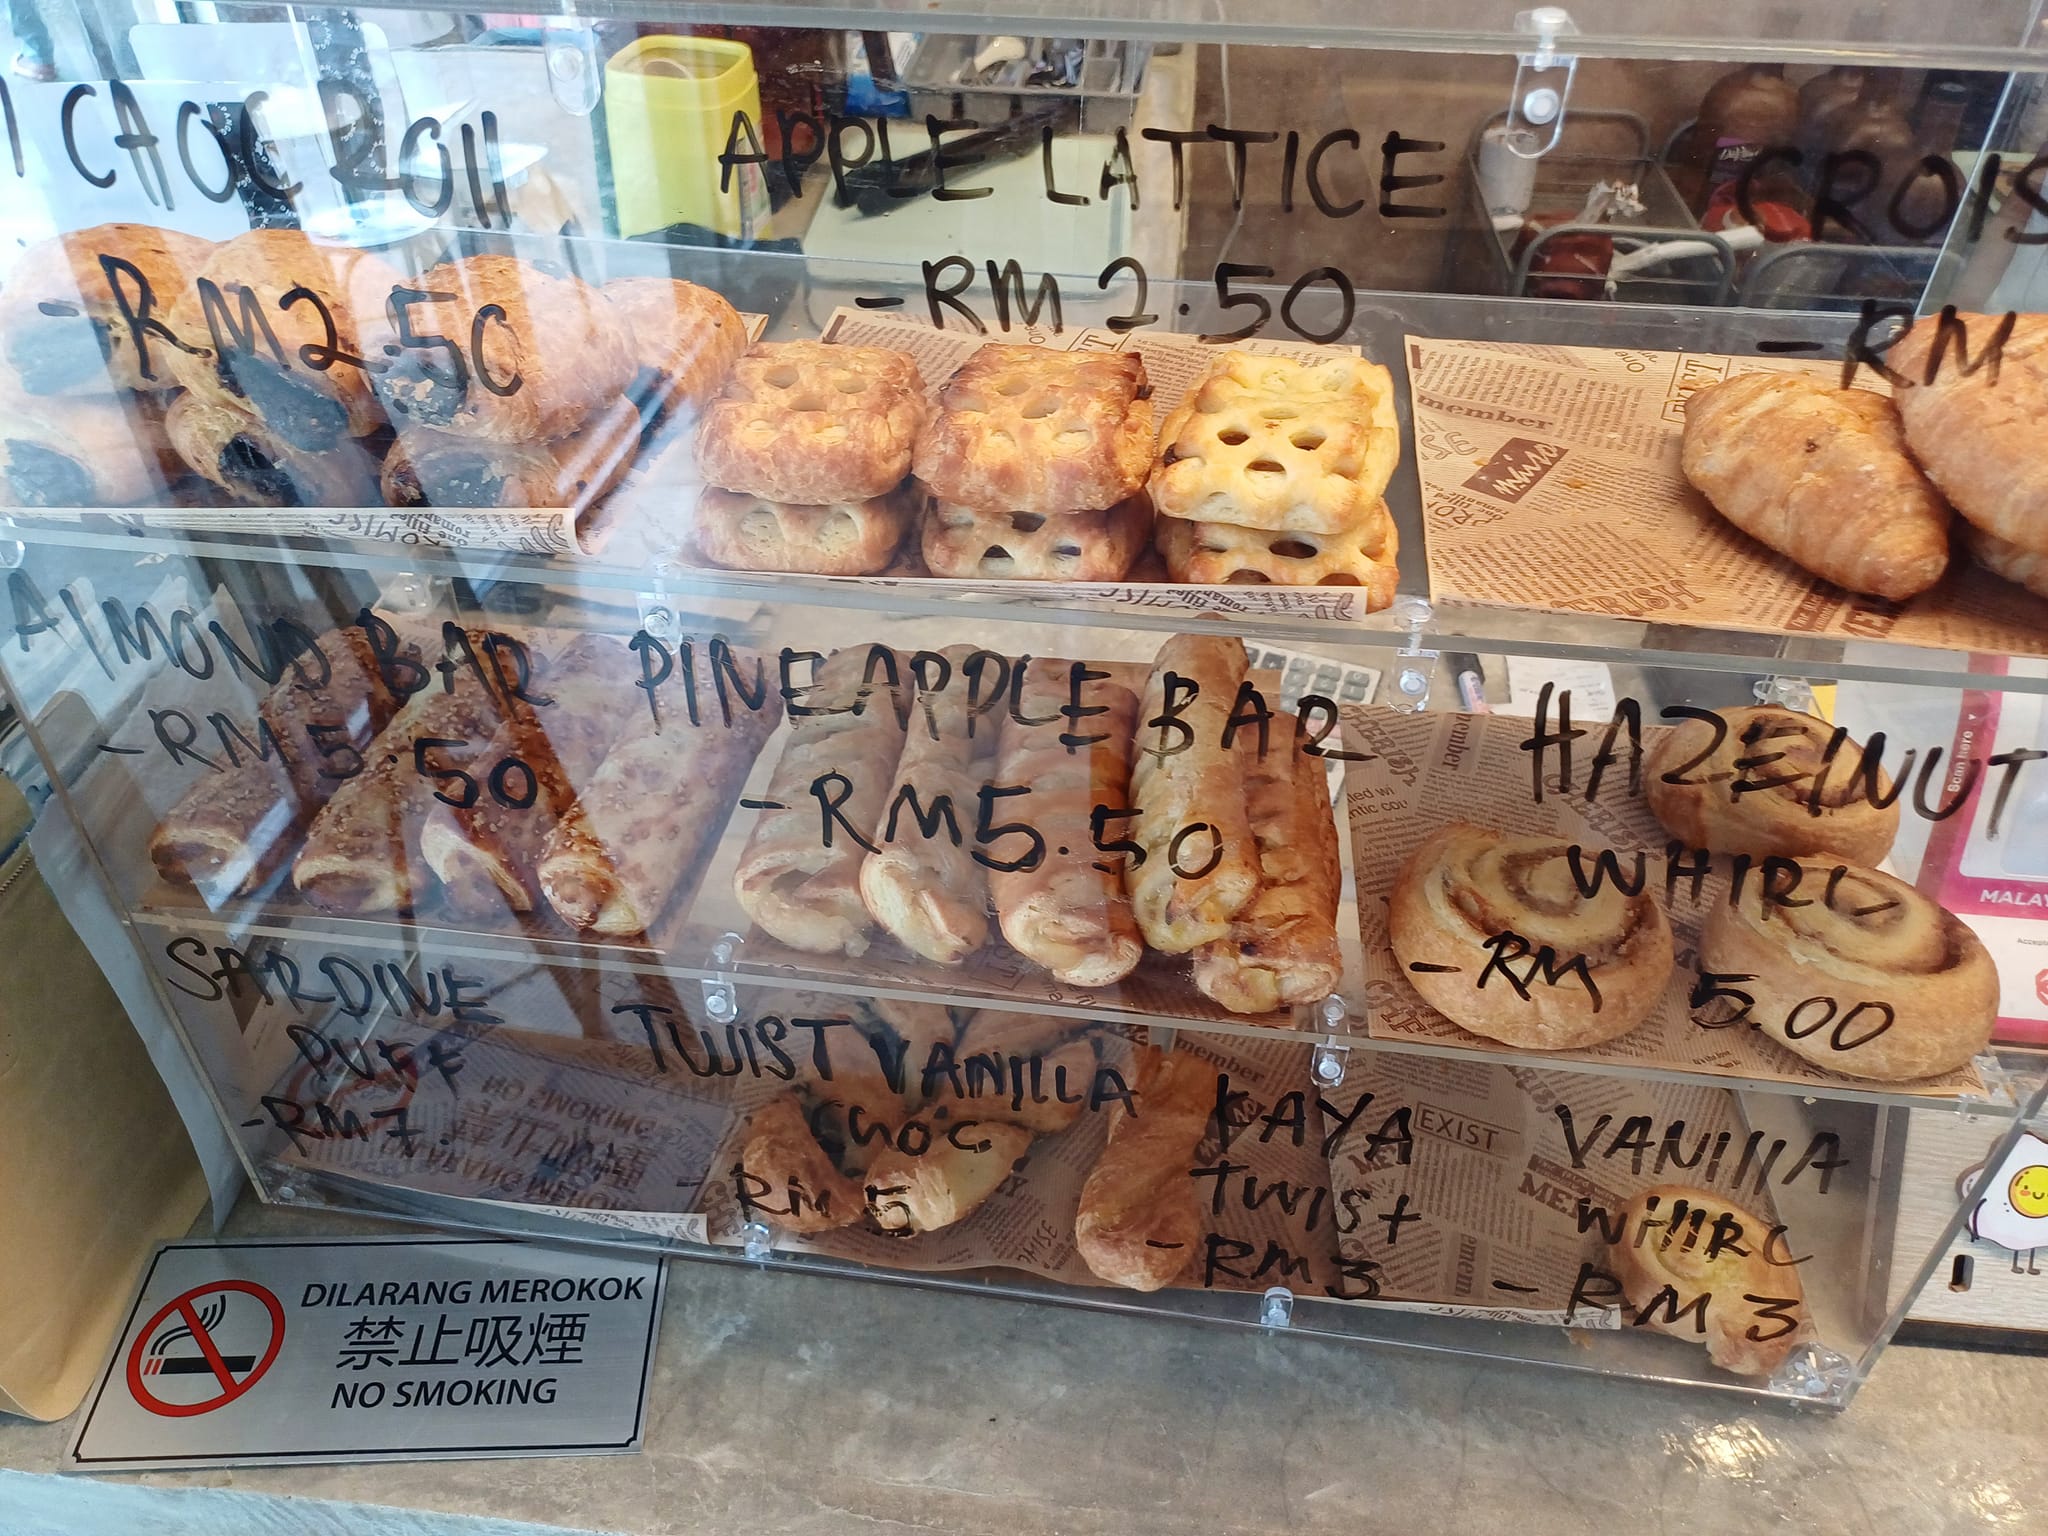 I CHOC ROll
-RM2.50
APPLE LATTICE
-RM 2.50
CROIS
-RM
AlMOND BAR
-RM 5.50
PINEAPPLE BAR
-RM5.50
HAZElNUT
WHIRL
-RM 5.00
SARDINE
PUFF
-RM7.
TWIST VANILLA
CHOC
- RM 5
KAYA
TWISt
-RM 3
VANIllA
WHIRL
- RM 3
member
EXIST
member
Scan here
MALAY
DILARANG MEROKOK
禁止吸煙
NO SMOKING